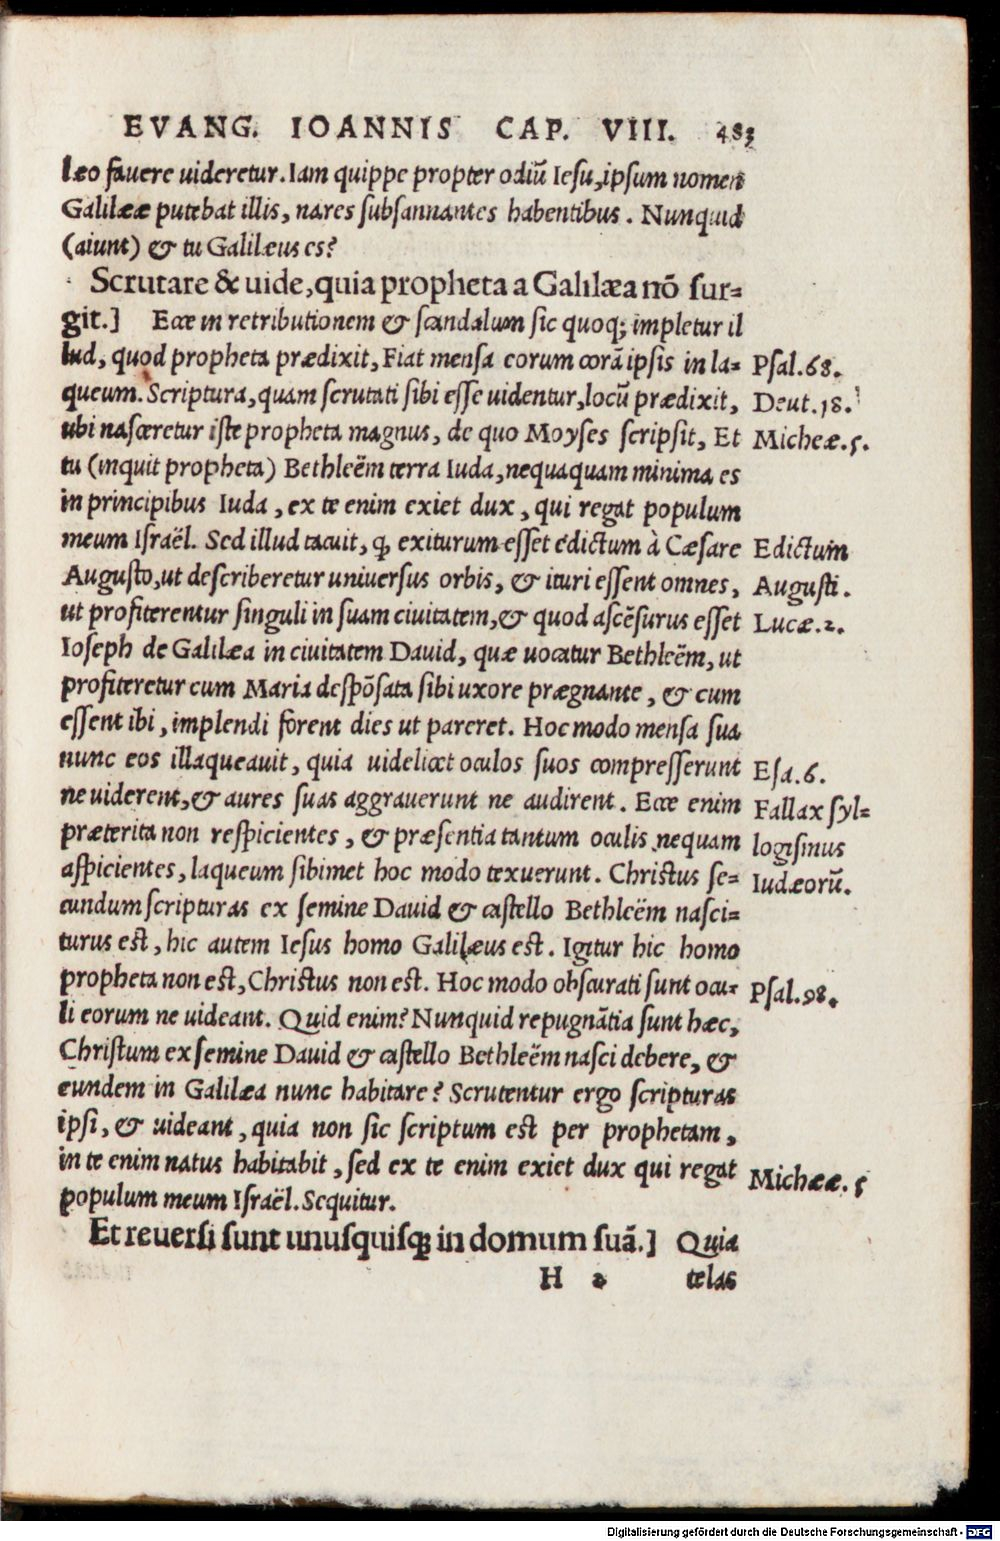 EVANG. IOANNIS CAP. VIII. 483
læo fauere uideretur. Iam quippe propter odiū Iesu, ipsum nomen
Galilææ putebat illis, nares subsannantes habentibus. Nunquid
(aiunt) & tu Galilæus es?
Scrutare & uide, quia propheta a Galilæa nō sur=
git.] Ecce in retributionem & scandalum sic quoq; impletur il
lud, quod propheta prædixit, Fiat mensa eorum corā ipsis in la= Psal.68.
queum. Scriptura, quam scrutati sibi esse uidentur, locū prædixit, Deut.18.
ubi nasceretur iste propheta magnus, de quo Moyses scripsit, Et Micheæ.5.
tu (inquit propheta) Bethleëm terra Iuda, nequaquam minima es
in principibus Iuda, ex te enim exiet dux, qui regat populum
meum Israël. Sed illud tacuit, q, exiturum esset edictum à Cæsare Edictum
Augusto, ut describeretur uniuersus orbis, & ituri essent omnes, Augusti.
ut profiterentur singuli in suam ciuitatem, & quod ascēsurus esset Lucæ.2.
Ioseph de Galilæa in ciuitatem Dauid, quæ uocatur Bethleëm, ut
profiteretur cum Maria despōsata sibi uxore prægnante, & cum
essent ibi, implendi forent dies ut pareret. Hoc modo mensa sua
nunc eos illaqueauit, quia uidelicet oculos suos compresserunt Esa.6.
ne uiderent, & aures suas aggrauerunt ne audirent. Ecce enim Fallax syl=
præterita non respicientes, & præsentia tantum oculis nequam logismus
aspicientes, laqueum sibimet hoc modo texuerunt. Christus se= Iudæorū.
cundum scripturas ex semine Dauid & castello Bethleëm nasci=
turus est, hic autem Iesus homo Galilæus est. Igitur hic homo
propheta non est, Christus non est. Hoc modo obscurati sunt ocu= Psal.98.
li eorum ne uideant. Quid enim? Nunquid repugnātia sunt hæc,
Christum ex semine Dauid & castello Bethleëm nasci debere, &
eundem in Galilæa nunc habitare? Scrutentur ergo scripturas
ipsi, & uideant, quia non sic scriptum est per prophetam,
in te enim natus habitabit, sed ex te enim exiet dux qui regat Michææ.5
populum meum Israël. Sequitur.
Et reuersi sunt unusquisq; in domum suā.] Quia
H 2 telas
Digitalisierung gefördert durch die Deutsche Forschungsgemeinschaft - DFG